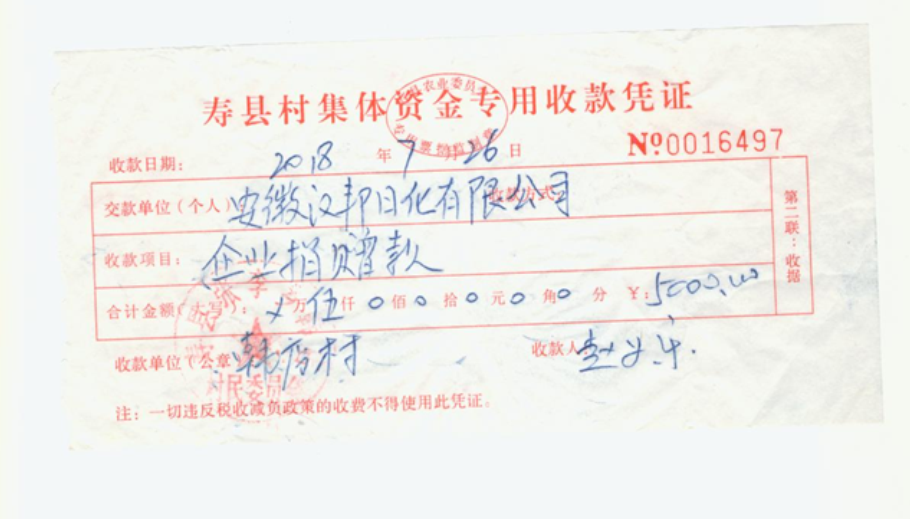 寿县村集体资金专用收款凭证
№0016497
收款日期: 2018 年 7 月 26 日
交款单位(个人): 安徽汉邦日化有限公司 收款方式
收款项目: 企业捐赠款
合计金额(大写): ×万伍仟0佰0拾0元0角0分 ¥:5000.00
第二联:收据
收款单位(公章): 村
收款人: 赵
注: 一切违反税收减负政策的收费不得使用此凭证。
农业委员
村民委员会